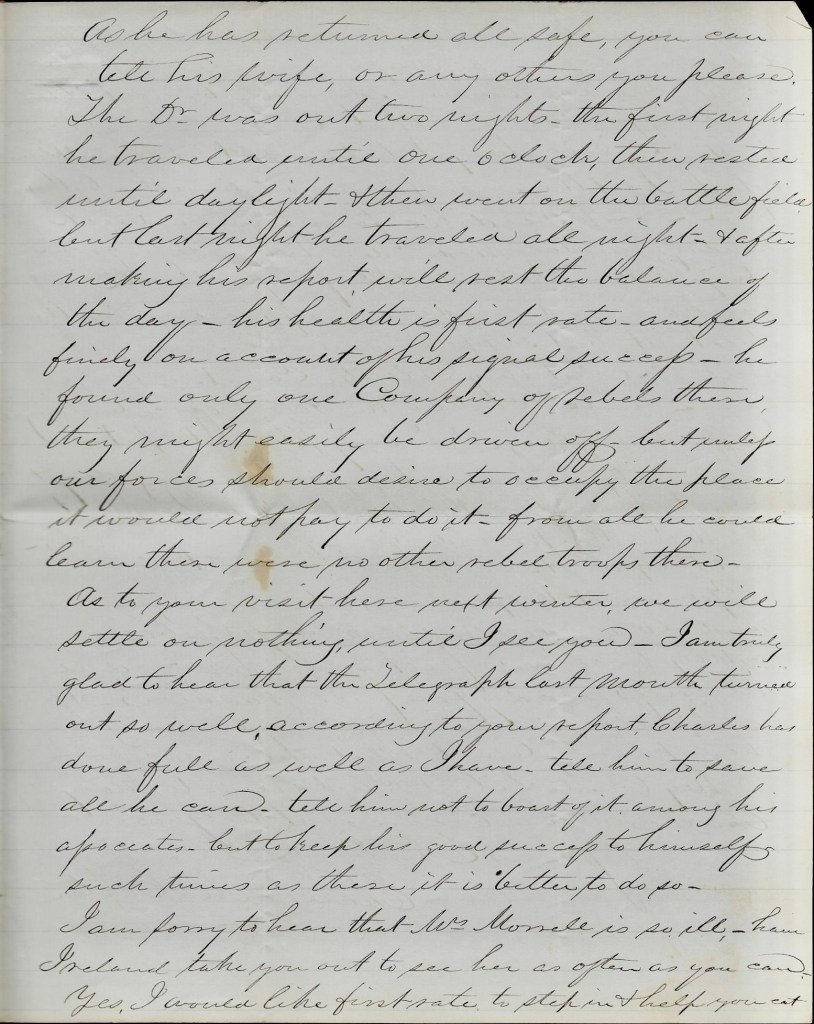 As he has returned all safe, you can
tell his wife, or any others you please.
The Dr was out two nights - the first night
he traveled until one o clock, then rested
until daylight - & then went on the battle field,
but last night he traveled all night - & after
making his report, will rest the balance of
the day - his health is first rate - and feels
finely on account of his signal success - he
found only one Company of rebels there,
they might easily be driven off - but unless
our forces should desire to occupy the place
it would not pay to do it - from all he could
learn there were no other rebel troops there -
As to your visit here next winter, we will
settle on nothing, until I see you - I am truly
glad to hear that the Telegraph last month turned
out so well, according to your report, Charles has
done full as well as I have - tell him to save
all he can - tell him not to boast of it among his
associates - but to keep his good success to himself
such times as these it is better to do so -
I am sorry to hear that Mrs Morrell is so ill, - have
Ireland take you out to see her as often as you can.
Yes, I would like first rate to step in & help you eat